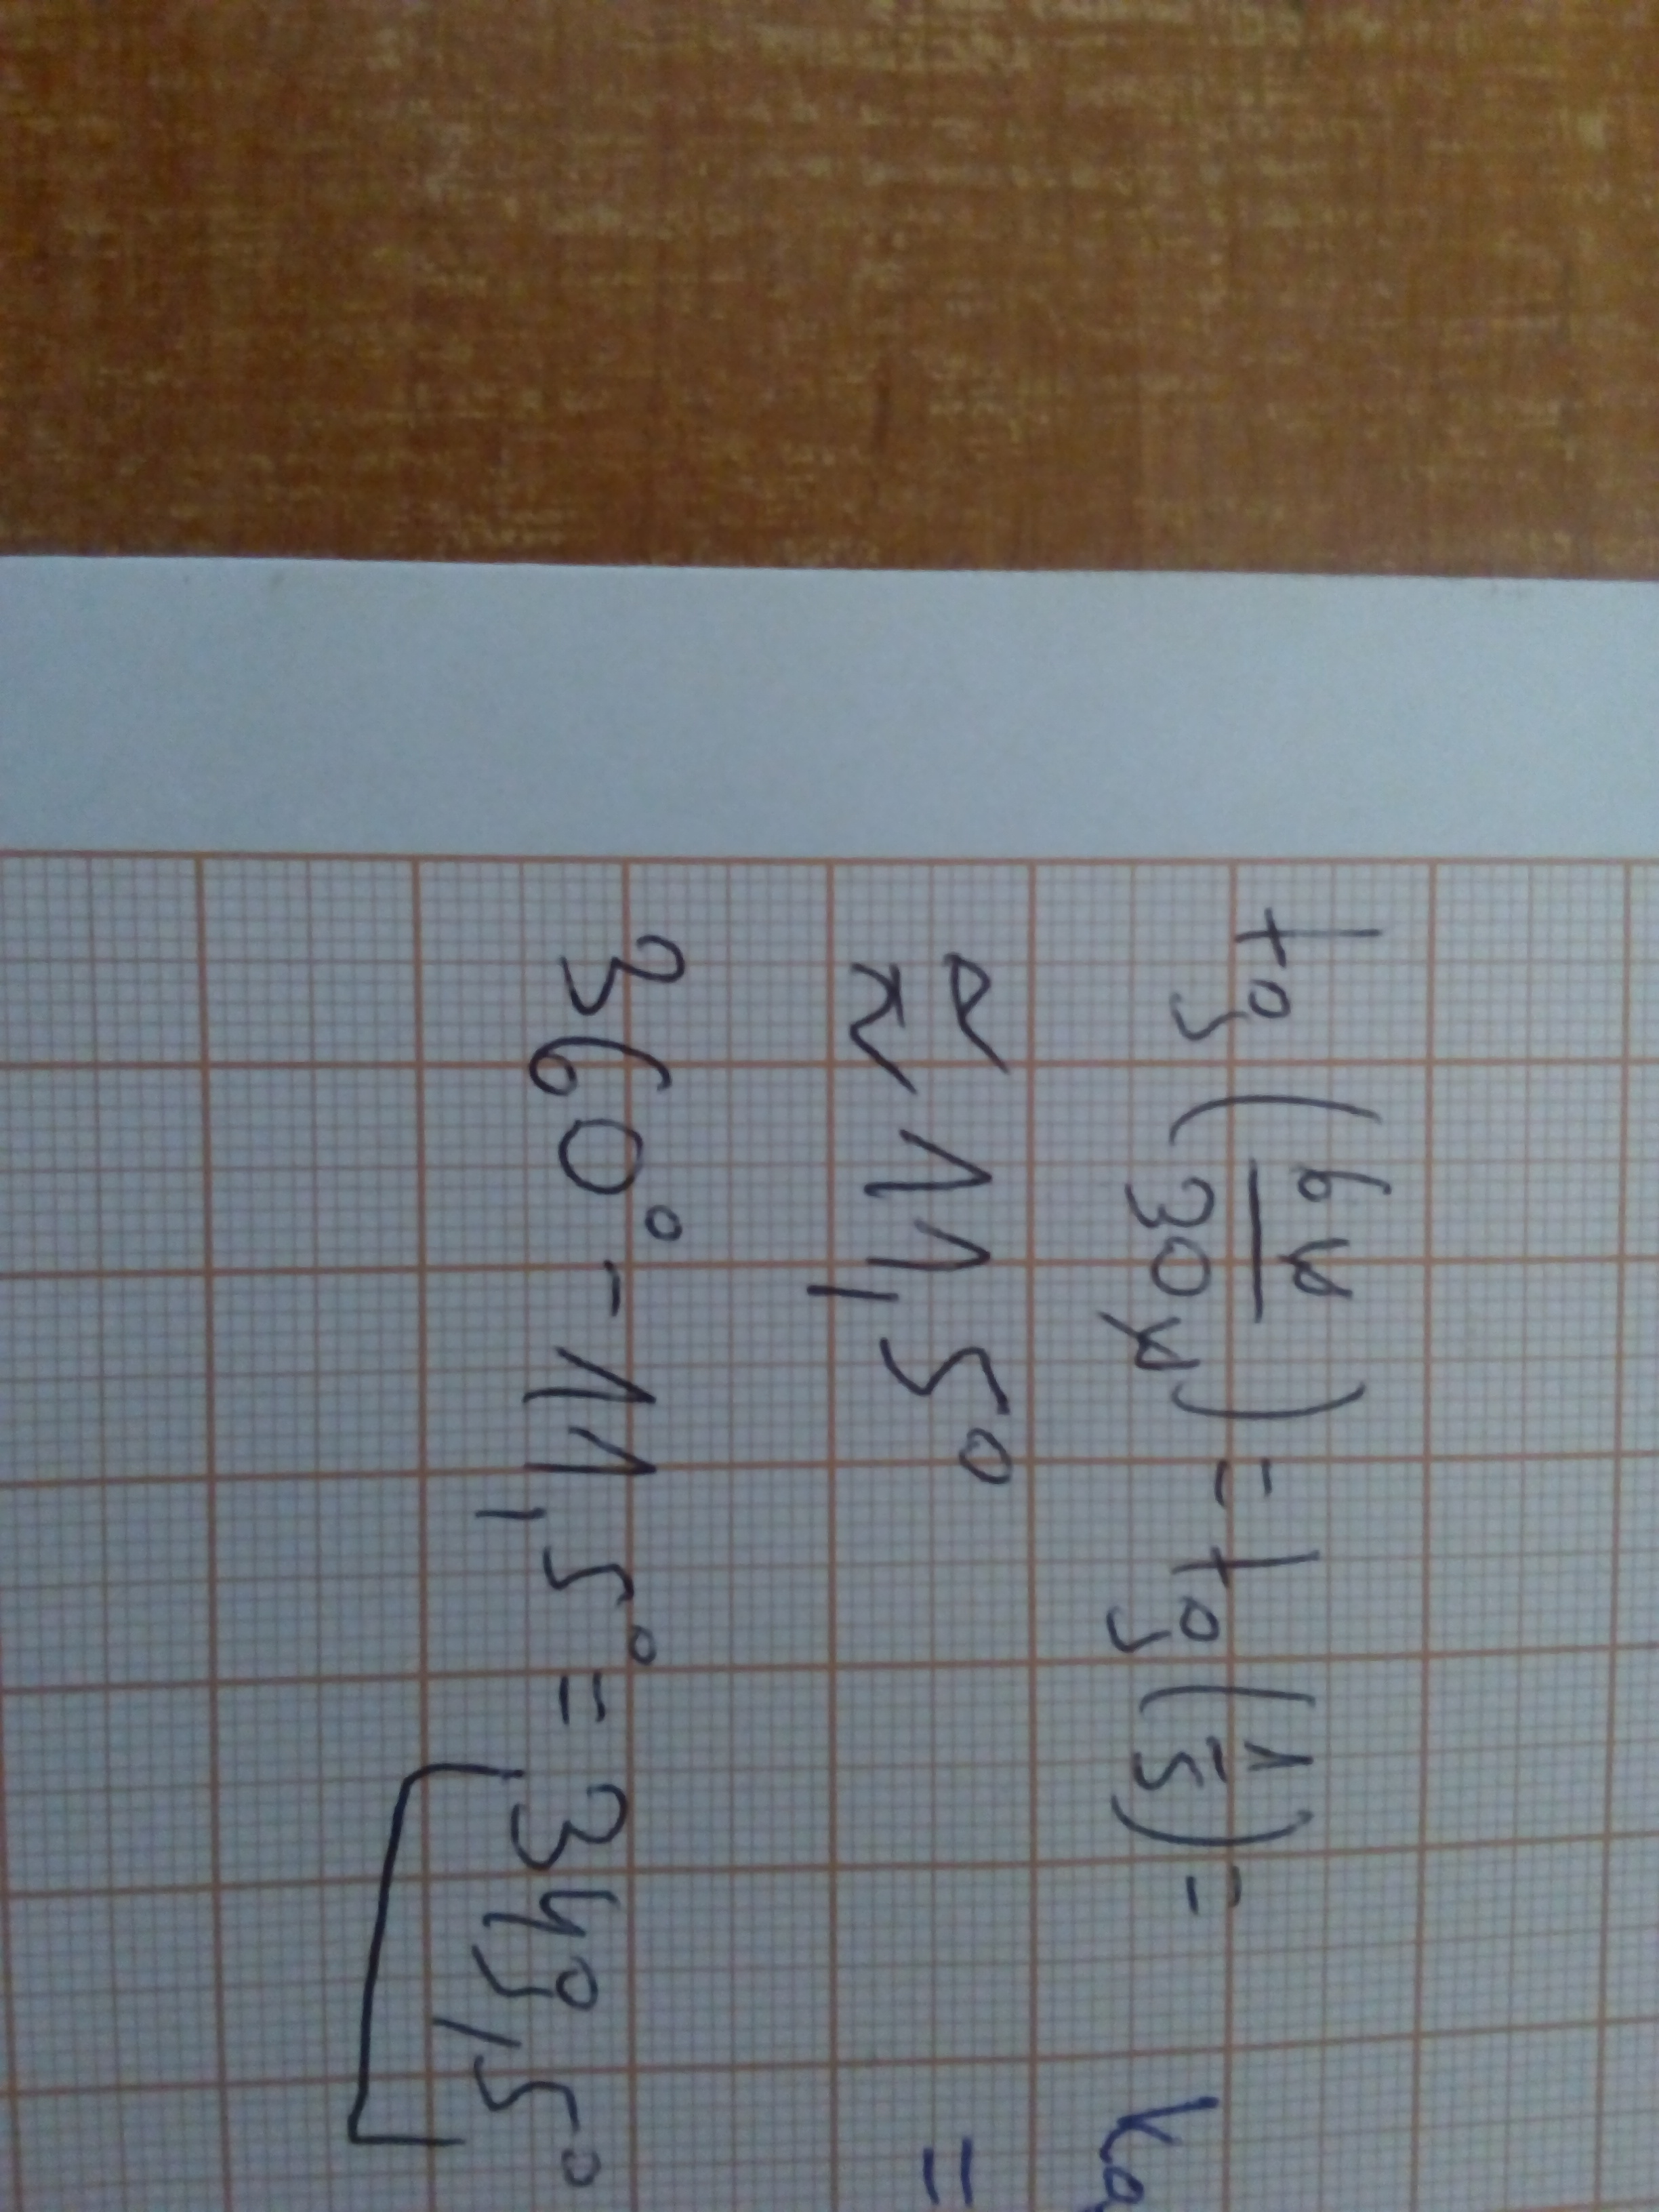 tg (6u/30u) = tg (1/5) =
≈ 11,5°
360° - 11,5° = 349,5°
=